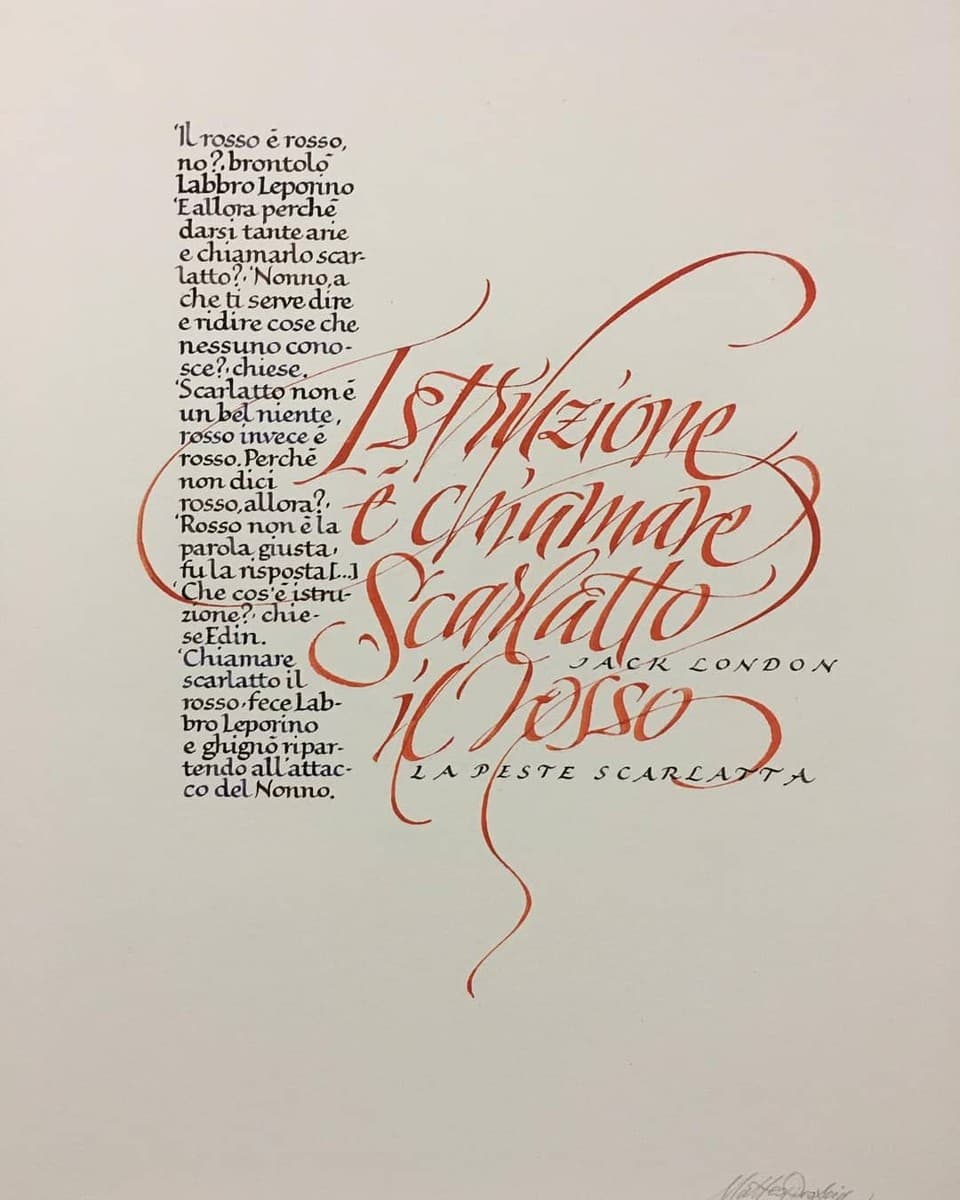 'Il rosso è rosso,
no?, brontolò
Labbro Leporino
'E allora perché
darsi tante arie
e chiamarlo scar-
latto?, 'Nonno, a
che ti serve dire
e ridire cose che
nessuno cono-
sce?, chiese.
'Scarlatto non è
un bel niente,
rosso invece è
rosso. Perché
non dici
rosso, allora?,
'Rosso non è la
parola giusta,
fu la risposta [...]
'Che cos'è istru-
zione?, chie-
se Edin.
'Chiamare
scarlatto il
rosso, fece Lab-
bro Leporino
e ghignò ripar-
tendo all'attac-
co del Nonno.
Istruzione
è chiamare
Scarlatto
JACK LONDON
il rosso
LA PESTE SCARLATTA
Matteo